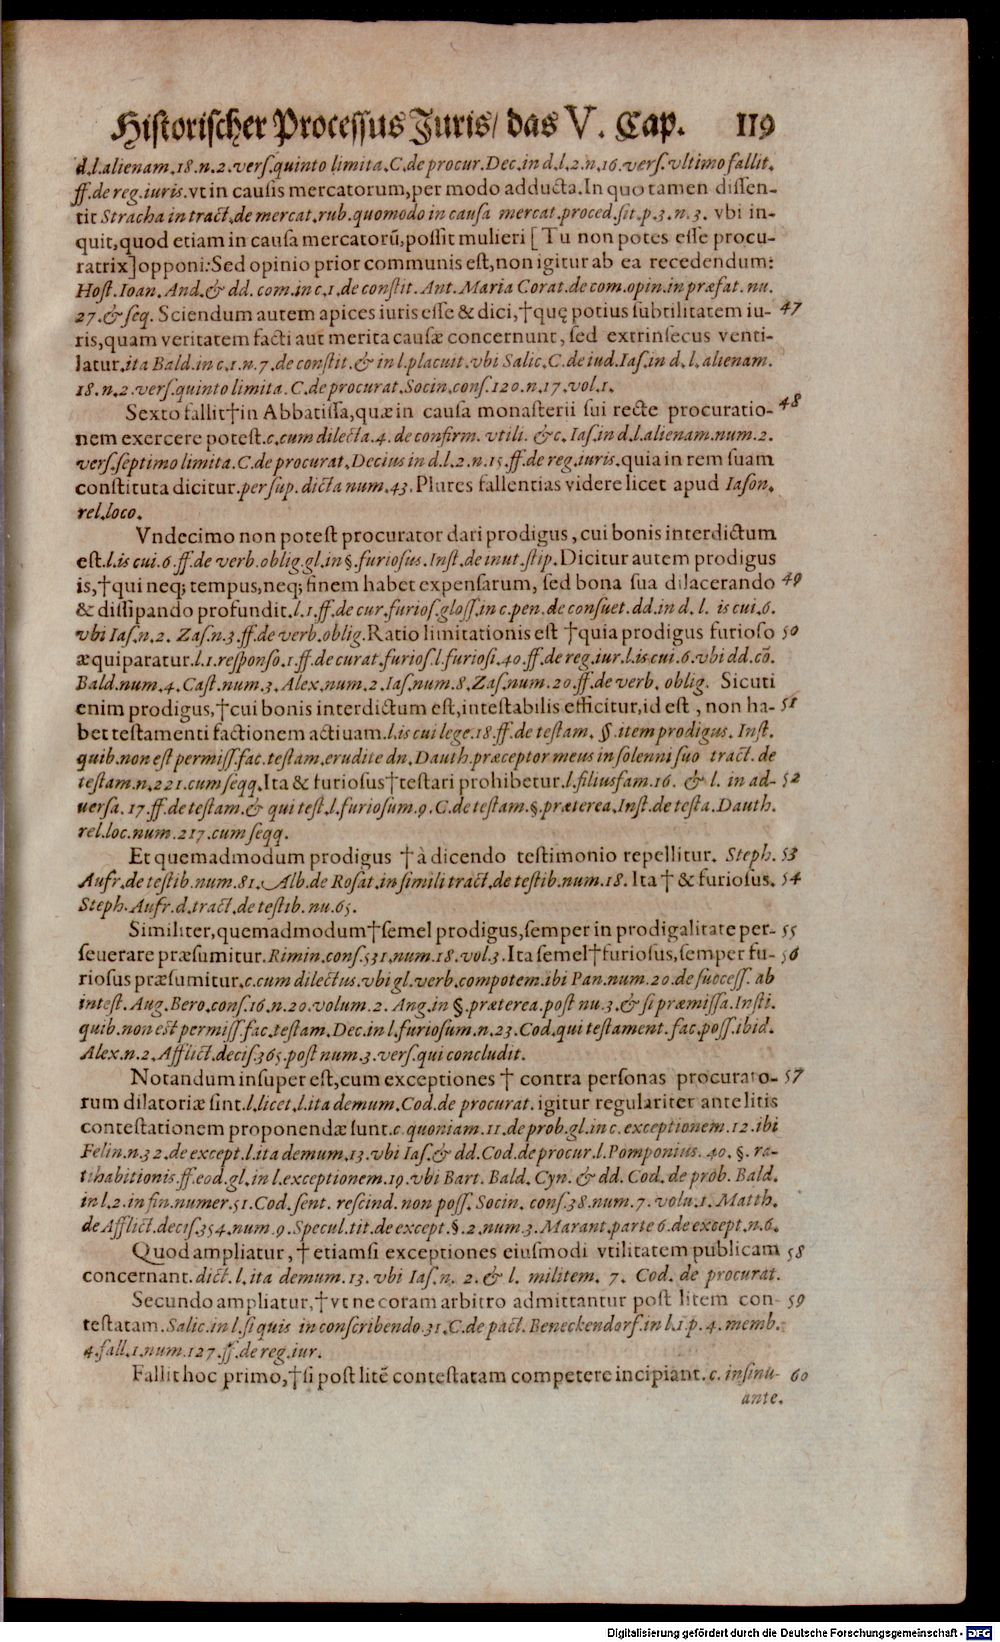 Historischer Processus Juris/ das V. Cap. 119
d.l.alienam.18.n.2.vers.quinto limita.C.de procur.Dec.in d.l.2.n.16.vers.vltimo fallit.
ff.de reg.iuris.vt in causis mercatorum,per modo adducta.In quo tamen dissen-
tit Stracha in tract.de mercat.rub.quomodo in causa mercat.proced.sit.p.3.n.3. vbi in-
quit,quod etiam in causa mercatorũ,possit mulieri [Tu non potes esse procu-
ratrix]opponi:Sed opinio prior communis est,non igitur ab ea recedendum:
Host.Ioan.And.& dd.com.in c.1.de constit.Ant.Maria Corat.de com.opin.in præfat.nu.
27.& seq. Sciendum autem apices iuris esse & dici,†quę potius subtilitatem iu- 47
ris,quam veritatem facti aut merita causæ concernunt, sed extrinsecus venti-
latur.ita Bald.in c.1.n.7.de constit.& in l.placuit.vbi Salic.C.de iud.Ias.in d.l.alienam.
18.n.2.vers.quinto limita.C.de procurat.Socin.cons.120.n.17.vol.1.
Sexto fallit†in Abbatissa,quæ in causa monasterii sui recte procuratio- 48
nem exercere potest.c.cum dilecta.4.de confirm.vtili. &c.Ias.in d.l.alienam.num.2.
vers.septimo limita.C.de procurat.Decius in d.l.2.n.15.ff.de reg.iuris.quia in rem suam
constituta dicitur.per sup.dicta num.43.Plures fallentias videre licet apud Iason.
rel.loco.
Vndecimo non potest procurator dari prodigus, cui bonis interdictum
est.l.is cui.6.ff.de verb.oblig.gl.in §.furiosus.Inst.de inut.stip.Dicitur autem prodigus
is,†qui neq; tempus,neq; finem habet expensarum, sed bona sua dilacerando 49
& dissipando profundit.l.1.ff.de cur.furios.gloss.in c.pen.de consuet.dd.in d.l. is cui.6.
vbi Ias.n.2. Zas.n.3.ff.de verb.oblig.Ratio limitationis est †quia prodigus furioso 50
æquiparatur.l.1.responso.1.ff.de curat.furios.l.furiosi.40.ff.de reg.iur.l.is cui.6.vbi dd.cõ.
Bald.num.4.Cast.num.3.Alex.num.2.Ias.num.8.Zas.num.20.ff.de verb. oblig. Sicuti
enim prodigus,†cui bonis interdictum est,intestabilis efficitur,id est, non ha- 51
bet testamenti factionem actiuam.l.is cui lege.18.ff.de testam. §.item prodigus. Inst.
quib.non est permiss.fac.testam.erudite dn.Dauth.præceptor meus in solenni suo tract. de
testam.n.221.cum seqq.Ita & furiosus†testari prohibetur.l.filiusfam.16. & l. in ad- 52
versa.17.ff.de testam.& qui test.l.furiosum.9.C.de testam.§.præterea.Inst.de testa.Dauth.
rel.loc.num.217.cum seqq.
Et quemadmodum prodigus † à dicendo testimonio repellitur. Steph. 53
Aufr.de testib.num.81.Alb.de Rosat.in simili tract.de testib.num.18.Ita † & furiosus. 54
Steph.Aufr.d.tract.de testib.nu.65.
Similiter,quemadmodum†semel prodigus,semper in prodigalitate per- 55
seuerare præsumitur.Rimin.cons.531.num.18.vol.3.Ita semel†furiosus,semper fu- 56
riosus præsumitur.c.cum dilectus.vbi gl.verb.compotem.ibi Pan.num.20.de success. ab
intest.Aug.Bero.cons.16.n.20.volum.2. Ang.in §.præterea.post nu.3.& si præmissa.Insti.
quib.non est permiss.fac.testam.Dec.in l.furiosum.n.23.Cod.qui testament.fac.poss.ibid.
Alex.n.2.Afflict.decis.365.post num.3.vers.qui concludit.
Notandum insuper est,cum exceptiones † contra personas procurato- 57
rum dilatoriæ sint.l.licet.l.ita demum.Cod.de procurat. igitur regulariter ante litis
contestationem proponendæ sunt.c.quoniam.11.de prob.gl.in c.exceptionem.12.ibi
Felin.n.32.de except.l.ita demum.13.vbi Ias.& dd.Cod.de procur.l.Pomponius.40. §. ra-
tihabitionis.ff.eod.gl.in l.exceptionem.19.vbi Bart. Bald. Cyn. & dd. Cod. de prob. Bald.
in l.2.in fin.numer.51.Cod.sent. rescind.non poss. Socin. cons.38.num.7.volu.1.Matth.
de Afflict.decis.354.num.9.Specul.tit.de except.§.2.num.3.Marant.parte 6.de except.n.6.
Quod ampliatur, † etiamsi exceptiones eiusmodi vtilitatem publicam 58
concernant.dict.l.ita demum.13.vbi Ias.n. 2.& l. militem. 7. Cod. de procurat.
Secundo ampliatur,†vt ne coram arbitro admittantur post litem con- 59
testatam.Salic.in l.si quis in conscribendo.31.C.de pact.Beneckendorf.in l.1 p.4.memb.
4.fall.1.num.127.ff.de reg.iur.
Fallit hoc primo,†si post litẽ contestatam competere incipiant.c. insinu- 60
ante.
Digitalisierung gefördert durch die Deutsche Forschungsgemeinschaft - DFG